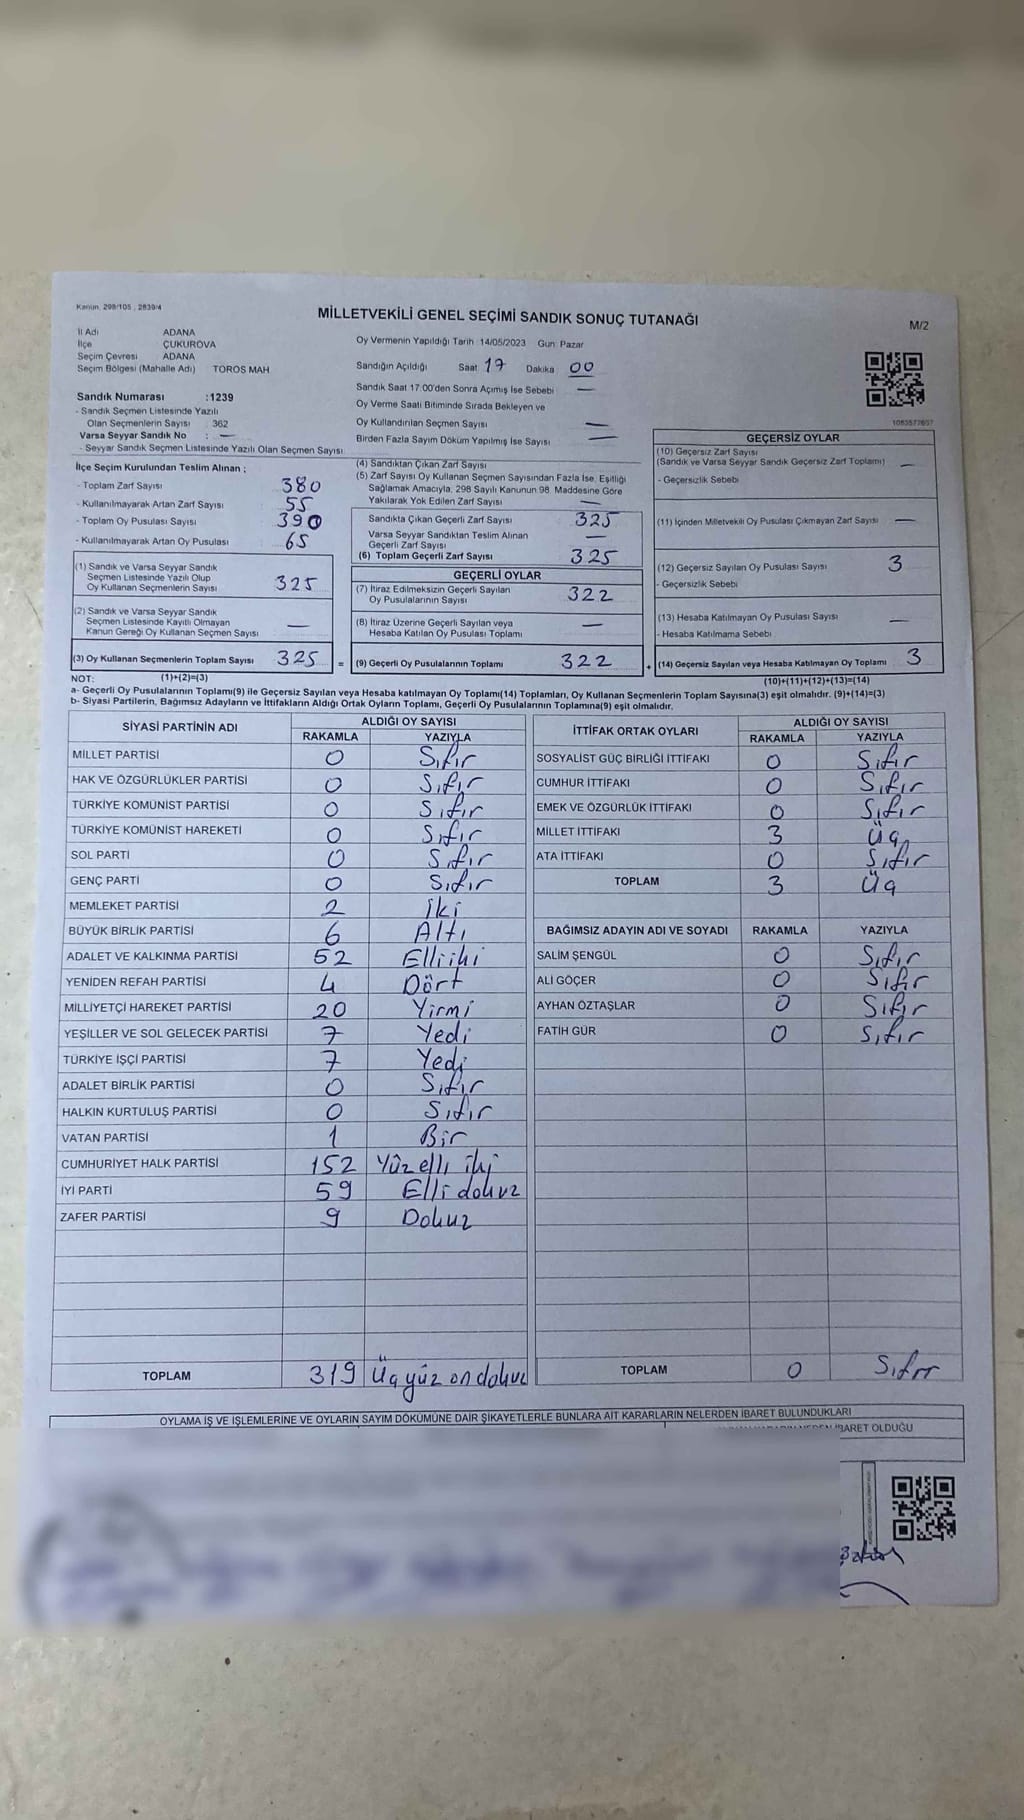 Kanun, 298/105 , 2839/4
MİLLETVEKİLİ GENEL SEÇİMİ SANDIK SONUÇ TUTANAĞI
M/2
İl Adı ADANA
İlçe ÇUKUROVA
Seçim Çevresi ADANA
Seçim Bölgesi (Mahalle Adı) TOROS MAH
Sandık Numarası :1239
- Sandık Seçmen Listesinde Yazılı
Olan Seçmenlerin Sayısı : 362
Varsa Seyyar Sandık No : —
- Seyyar Sandık Seçmen Listesinde Yazılı Olan Seçmen Sayısı
Oy Vermenin Yapıldığı Tarih : 14/05/2023 Gün: Pazar
Sandığın Açıldığı Saat 17 Dakika 00
Sandık Saat 17.00'den Sonra Açımış İse Sebebi —
Oy Verme Saati Bitiminde Sırada Bekleyen ve
Oy Kullandırılan Seçmen Sayısı —
Birden Fazla Sayım Döküm Yapılmış İse Sayısı —
1083577657
İlçe Seçim Kurulundan Teslim Alınan ;
- Toplam Zarf Sayısı 380
- Kullanılmayarak Artan Zarf Sayısı 55
- Toplam Oy Pusulası Sayısı 390
- Kullanılmayarak Artan Oy Pusulası 65
(1) Sandık ve Varsa Seyyar Sandık
Seçmen Listesinde Yazılı Olup
Oy Kullanan Seçmenlerin Sayısı 325
(2) Sandık ve Varsa Seyyar Sandık
Seçmen Listesinde Kayıtlı Olmayan
Kanun Gereği Oy Kullanan Seçmen Sayısı —
(3) Oy Kullanan Seçmenlerin Toplam Sayısı 325 =
(4) Sandıktan Çıkan Zarf Sayısı
(5) Zarf Sayısı Oy Kullanan Seçmen Sayısından Fazla İse, Eşitliği
Sağlamak Amacıyla, 298 Sayılı Kanunun 98. Maddesine Göre
Yakılarak Yok Edilen Zarf Sayısı —
Sandıkta Çıkan Geçerli Zarf Sayısı 325
Varsa Seyyar Sandıktan Teslim Alınan
Geçerli Zarf Sayısı —
(6) Toplam Geçerli Zarf Sayısı 325
GEÇERLİ OYLAR
(7) İtiraz Edilmeksizin Geçerli Sayılan
Oy Pusulalarının Sayısı 322
(8) İtiraz Üzerine Geçerli Sayılan veya
Hesaba Katılan Oy Pusulası Toplamı —
(9) Geçerli Oy Pusulalarının Toplamı 322 +
GEÇERSİZ OYLAR
(10) Geçersiz Zarf Sayısı
(Sandık ve Varsa Seyyar Sandık Geçersiz Zarf Toplamı) —
- Geçersizlik Sebebi
(11) İçinden Milletvekili Oy Pusulası Çıkmayan Zarf Sayısı —
(12) Geçersiz Sayılan Oy Pusulası Sayısı 3
- Geçersizlik Sebebi
(13) Hesaba Katılmayan Oy Pusulası Sayısı —
- Hesaba Katılmama Sebebi
(14) Geçersiz Sayılan veya Hesaba Katılmayan Oy Toplamı 3
NOT: (1)+(2)=(3) (10)+(11)+(12)+(13)=(14)
a- Geçerli Oy Pusulalarının Toplamı(9) ile Geçersiz Sayılan veya Hesaba katılmayan Oy Toplamı(14) Toplamları, Oy Kullanan Seçmenlerin Toplam Sayısına(3) eşit olmalıdır. (9)+(14)=(3)
b- Siyasi Partilerin, Bağımsız Adayların ve İttifakların Aldığı Ortak Oyların Toplamı, Geçerli Oy Pusulalarının Toplamına(9) eşit olmalıdır.
SİYASİ PARTİNİN ADI ALDIĞI OY SAYISI
RAKAMLA YAZIYLA
MİLLET PARTİSİ 0 Sıfır
HAK VE ÖZGÜRLÜKLER PARTİSİ 0 Sıfır
TÜRKİYE KOMÜNİST PARTİSİ 0 Sıfır
TÜRKİYE KOMÜNİST HAREKETİ 0 Sıfır
SOL PARTİ 0 Sıfır
GENÇ PARTİ 0 Sıfır
MEMLEKET PARTİSİ 2 İki
BÜYÜK BİRLİK PARTİSİ 6 Altı
ADALET VE KALKINMA PARTİSİ 52 Elliiki
YENİDEN REFAH PARTİSİ 4 Dört
MİLLİYETÇİ HAREKET PARTİSİ 20 Yirmi
YEŞİLLER VE SOL GELECEK PARTİSİ 7 Yedi
TÜRKİYE İŞÇİ PARTİSİ 7 Yedi
ADALET BİRLİK PARTİSİ 0 Sıfır
HALKIN KURTULUŞ PARTİSİ 0 Sıfır
VATAN PARTİSİ 1 Bir
CUMHURİYET HALK PARTİSİ 152 Yüzelli iki
İYİ PARTİ 59 Elli dokuz
ZAFER PARTİSİ 9 Dokuz
TOPLAM 319 Üçyüz on dokuz
İTTİFAK ORTAK OYLARI ALDIĞI OY SAYISI
RAKAMLA YAZIYLA
SOSYALİST GÜÇ BİRLİĞİ İTTİFAKI 0 Sıfır
CUMHUR İTTİFAKI 0 Sıfır
EMEK VE ÖZGÜRLÜK İTTİFAKI 0 Sıfır
MİLLET İTTİFAKI 3 Üç
ATA İTTİFAKI 0 Sıfır
TOPLAM 3 Üç
BAĞIMSIZ ADAYIN ADI VE SOYADI RAKAMLA YAZIYLA
SALİM ŞENGÜL 0 Sıfır
ALİ GÖÇER 0 Sıfır
AYHAN ÖZTAŞLAR 0 Sıfır
FATİH GÜR 0 Sıfır
TOPLAM 0 Sıfır
OYLAMA İŞ VE İŞLEMLERİNE VE OYLARIN SAYIM DÖKÜMÜNE DAİR ŞİKAYETLERLE BUNLARA AİT KARARLARIN NELERDEN İBARET BULUNDUKLARI
İBARET OLDUĞU